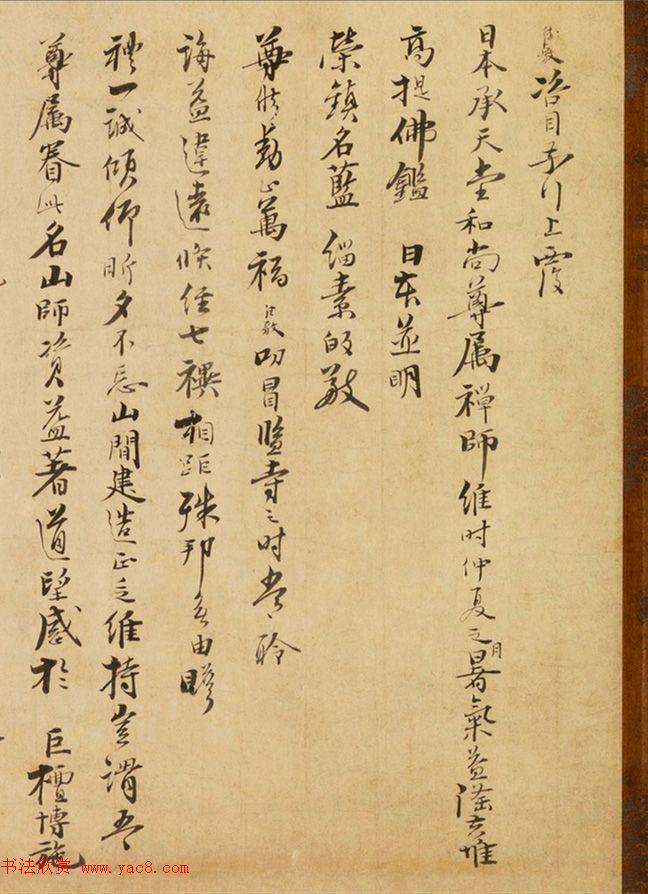 德敷咨目上覆
日本承天堂和尚尊属禅師維时仲夏之月暑氣益隆共惟
高提佛鑑 日並明
榮鎮名藍 緇素皈敬
尊候動止萬福德敷叨冒監寺之时嘗聆
誨益違遠倐经七禩相距殊邦無由瞻
禮一誠傾仰昕夕不忘山間建造正乏維持豈謂吾
尊属眷此名山師資益著道望感於 巨檀博施
书法欣赏 www.yac8.com